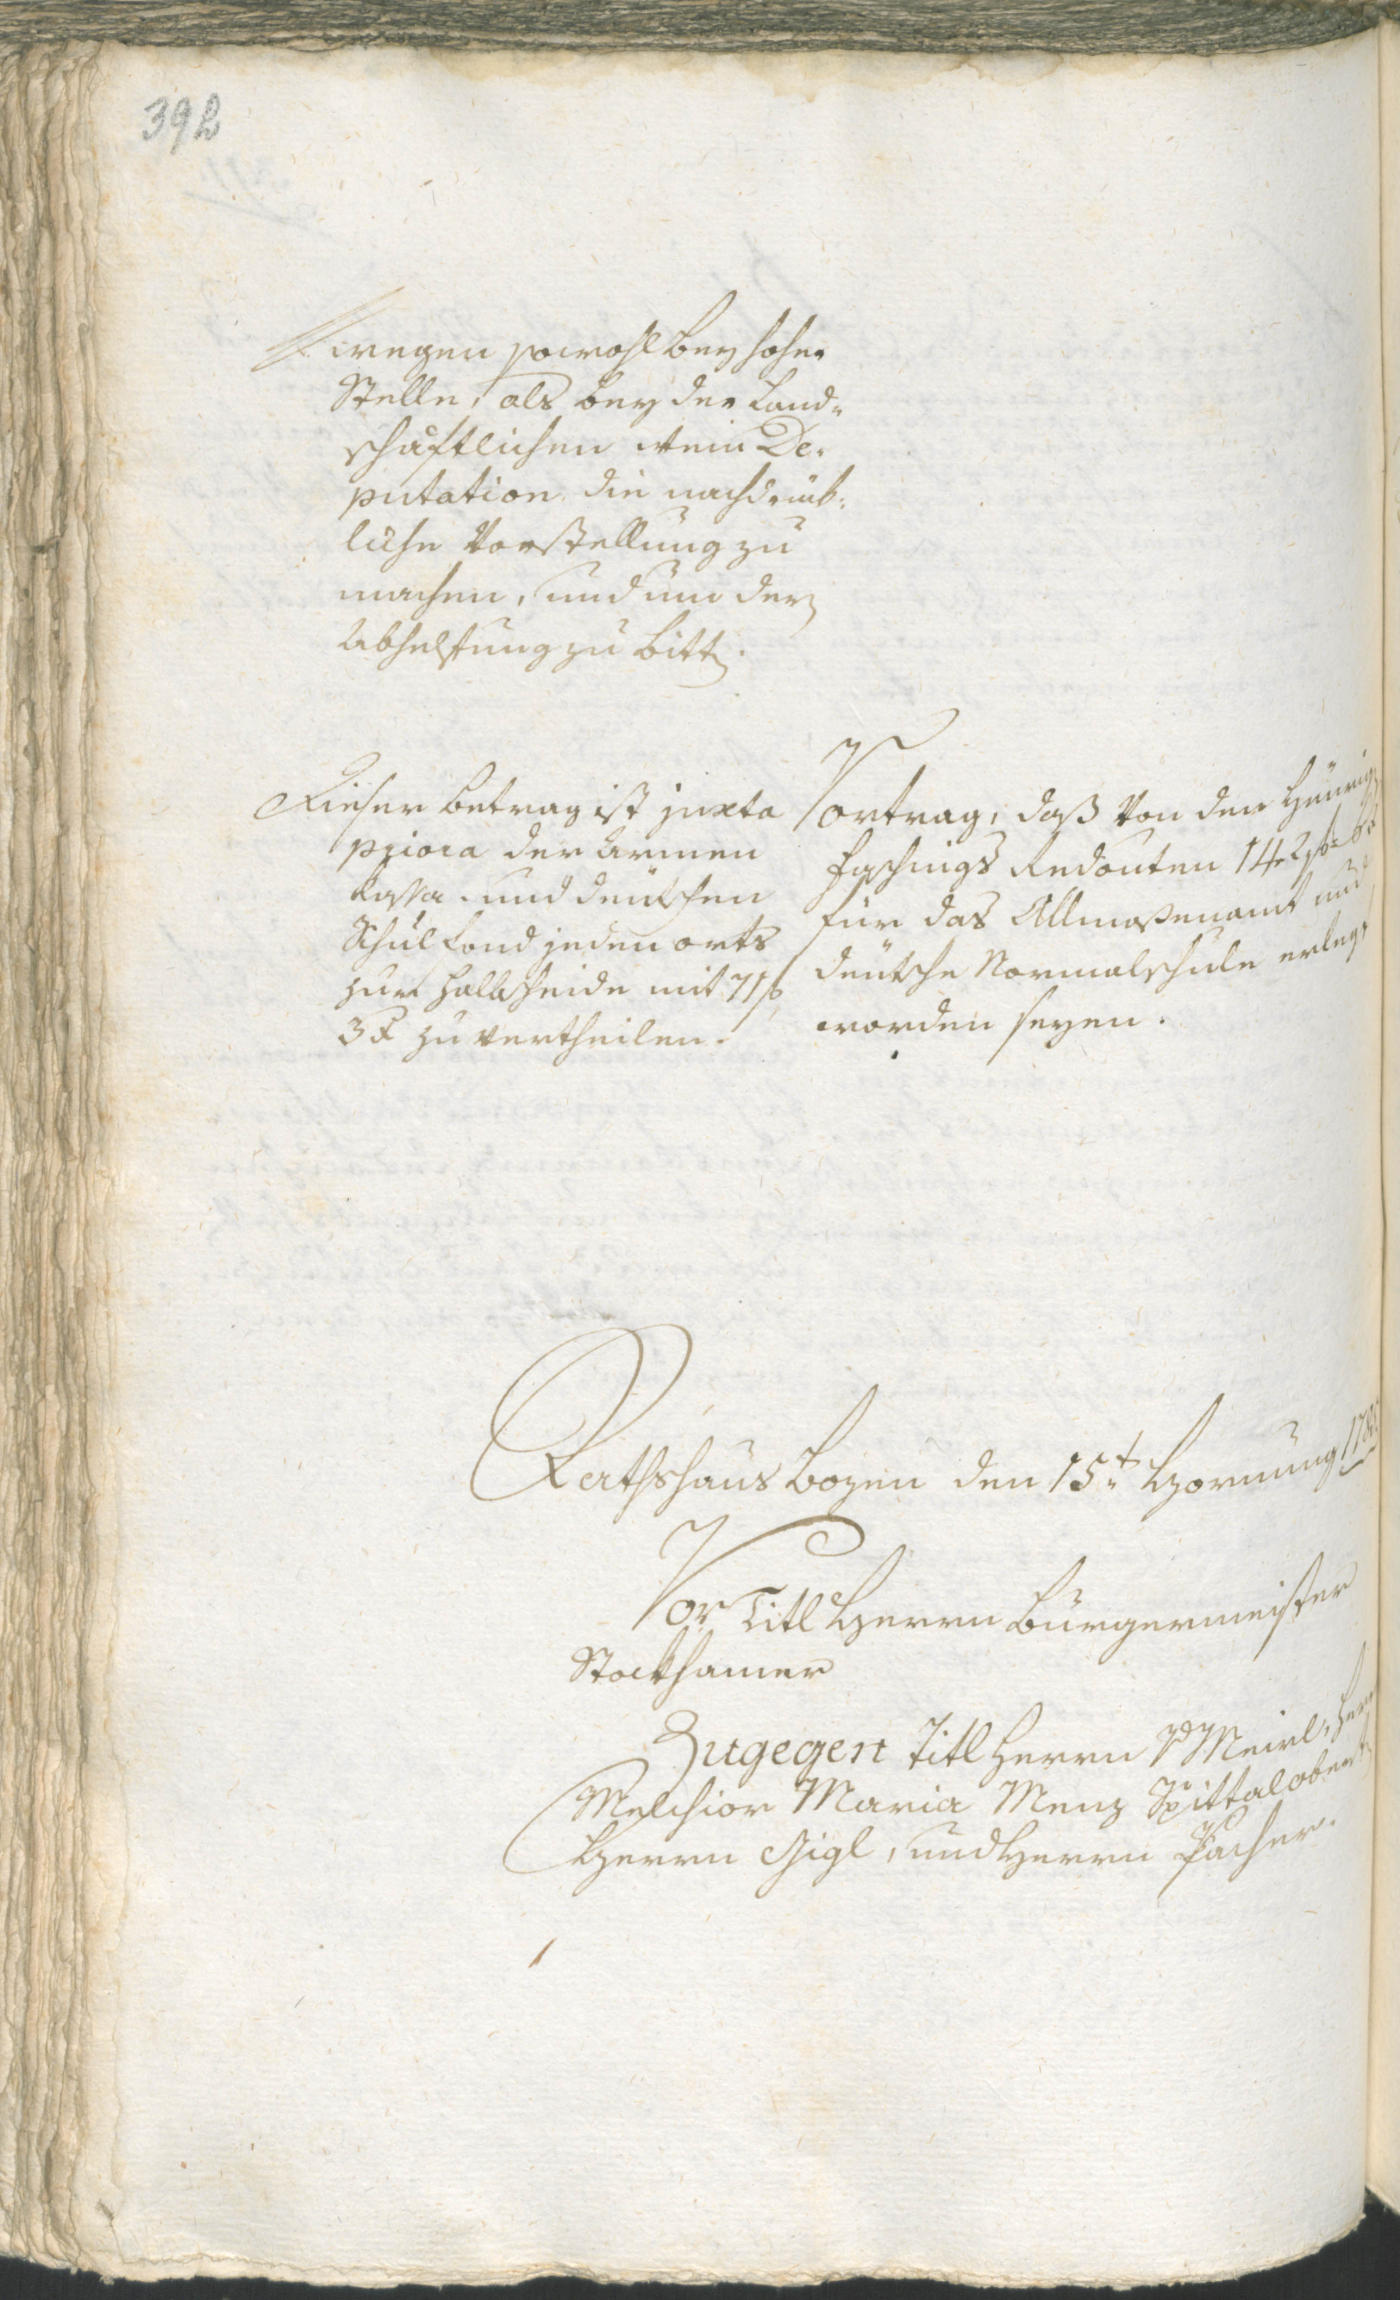 392
wegen sowohl bey hoher
Stelle, als bey der Land„
schäftlichen Wein De„
putation die nachdrük„
liche Vorstellung zu
machen, und um derẽ
Abhelfung zu bittẽ.
Dieser betrag ist juxta
priora der Armen
Kassa und deutschen
Schul Fond jeden orts
zur Halbscheide mit 71 f
3 x zu vertheilen.
Vortrag, daß von den heurigẽ
Faschings Redouten 142 f 6 x
für das Allmoßenamt und
deutsche Normalschule erlegt
worden seyen.
Rathshaus Bozen den 15t Hornung
Vor Titl Herrn Bürgermeister
Stockhamer
Zugegen Titl Herrn
Melchior Maria Menz Spittalobrist
Herrn Gigl, und Herrn Pacher.